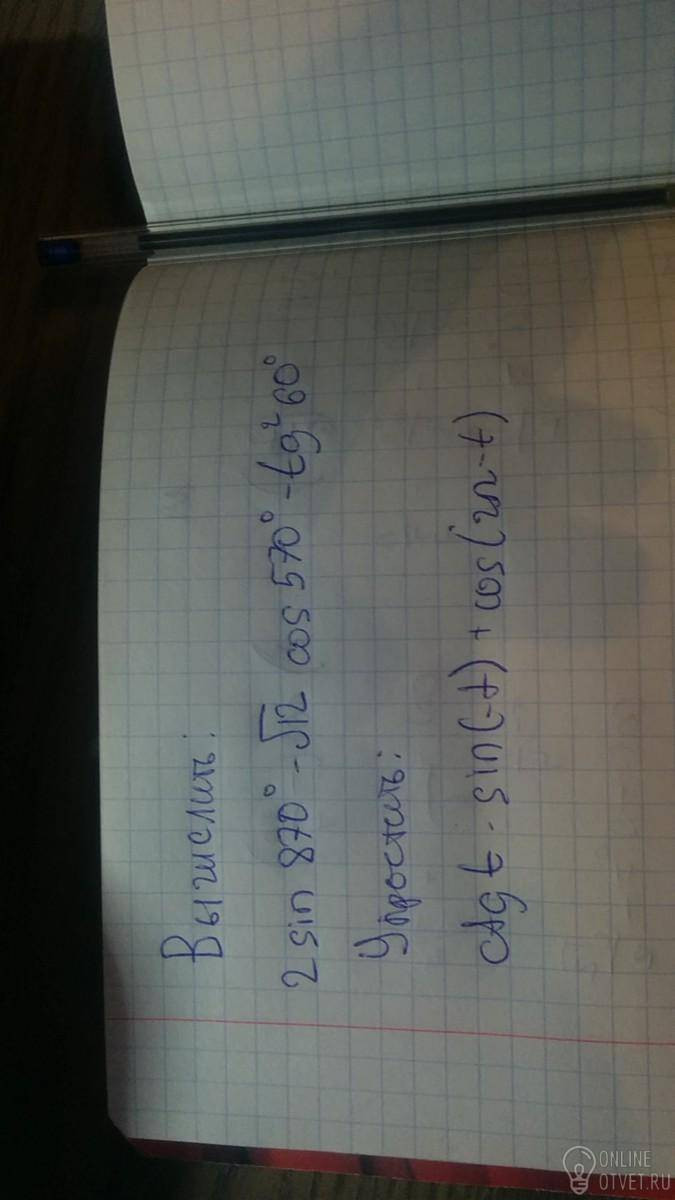 Вычислить:
2 sin 870° - √12 cos 570° - tg² 60°
Упростить:
ctg t · sin(-t) + cos(2π-t)
ONLINE
OTVET.RU